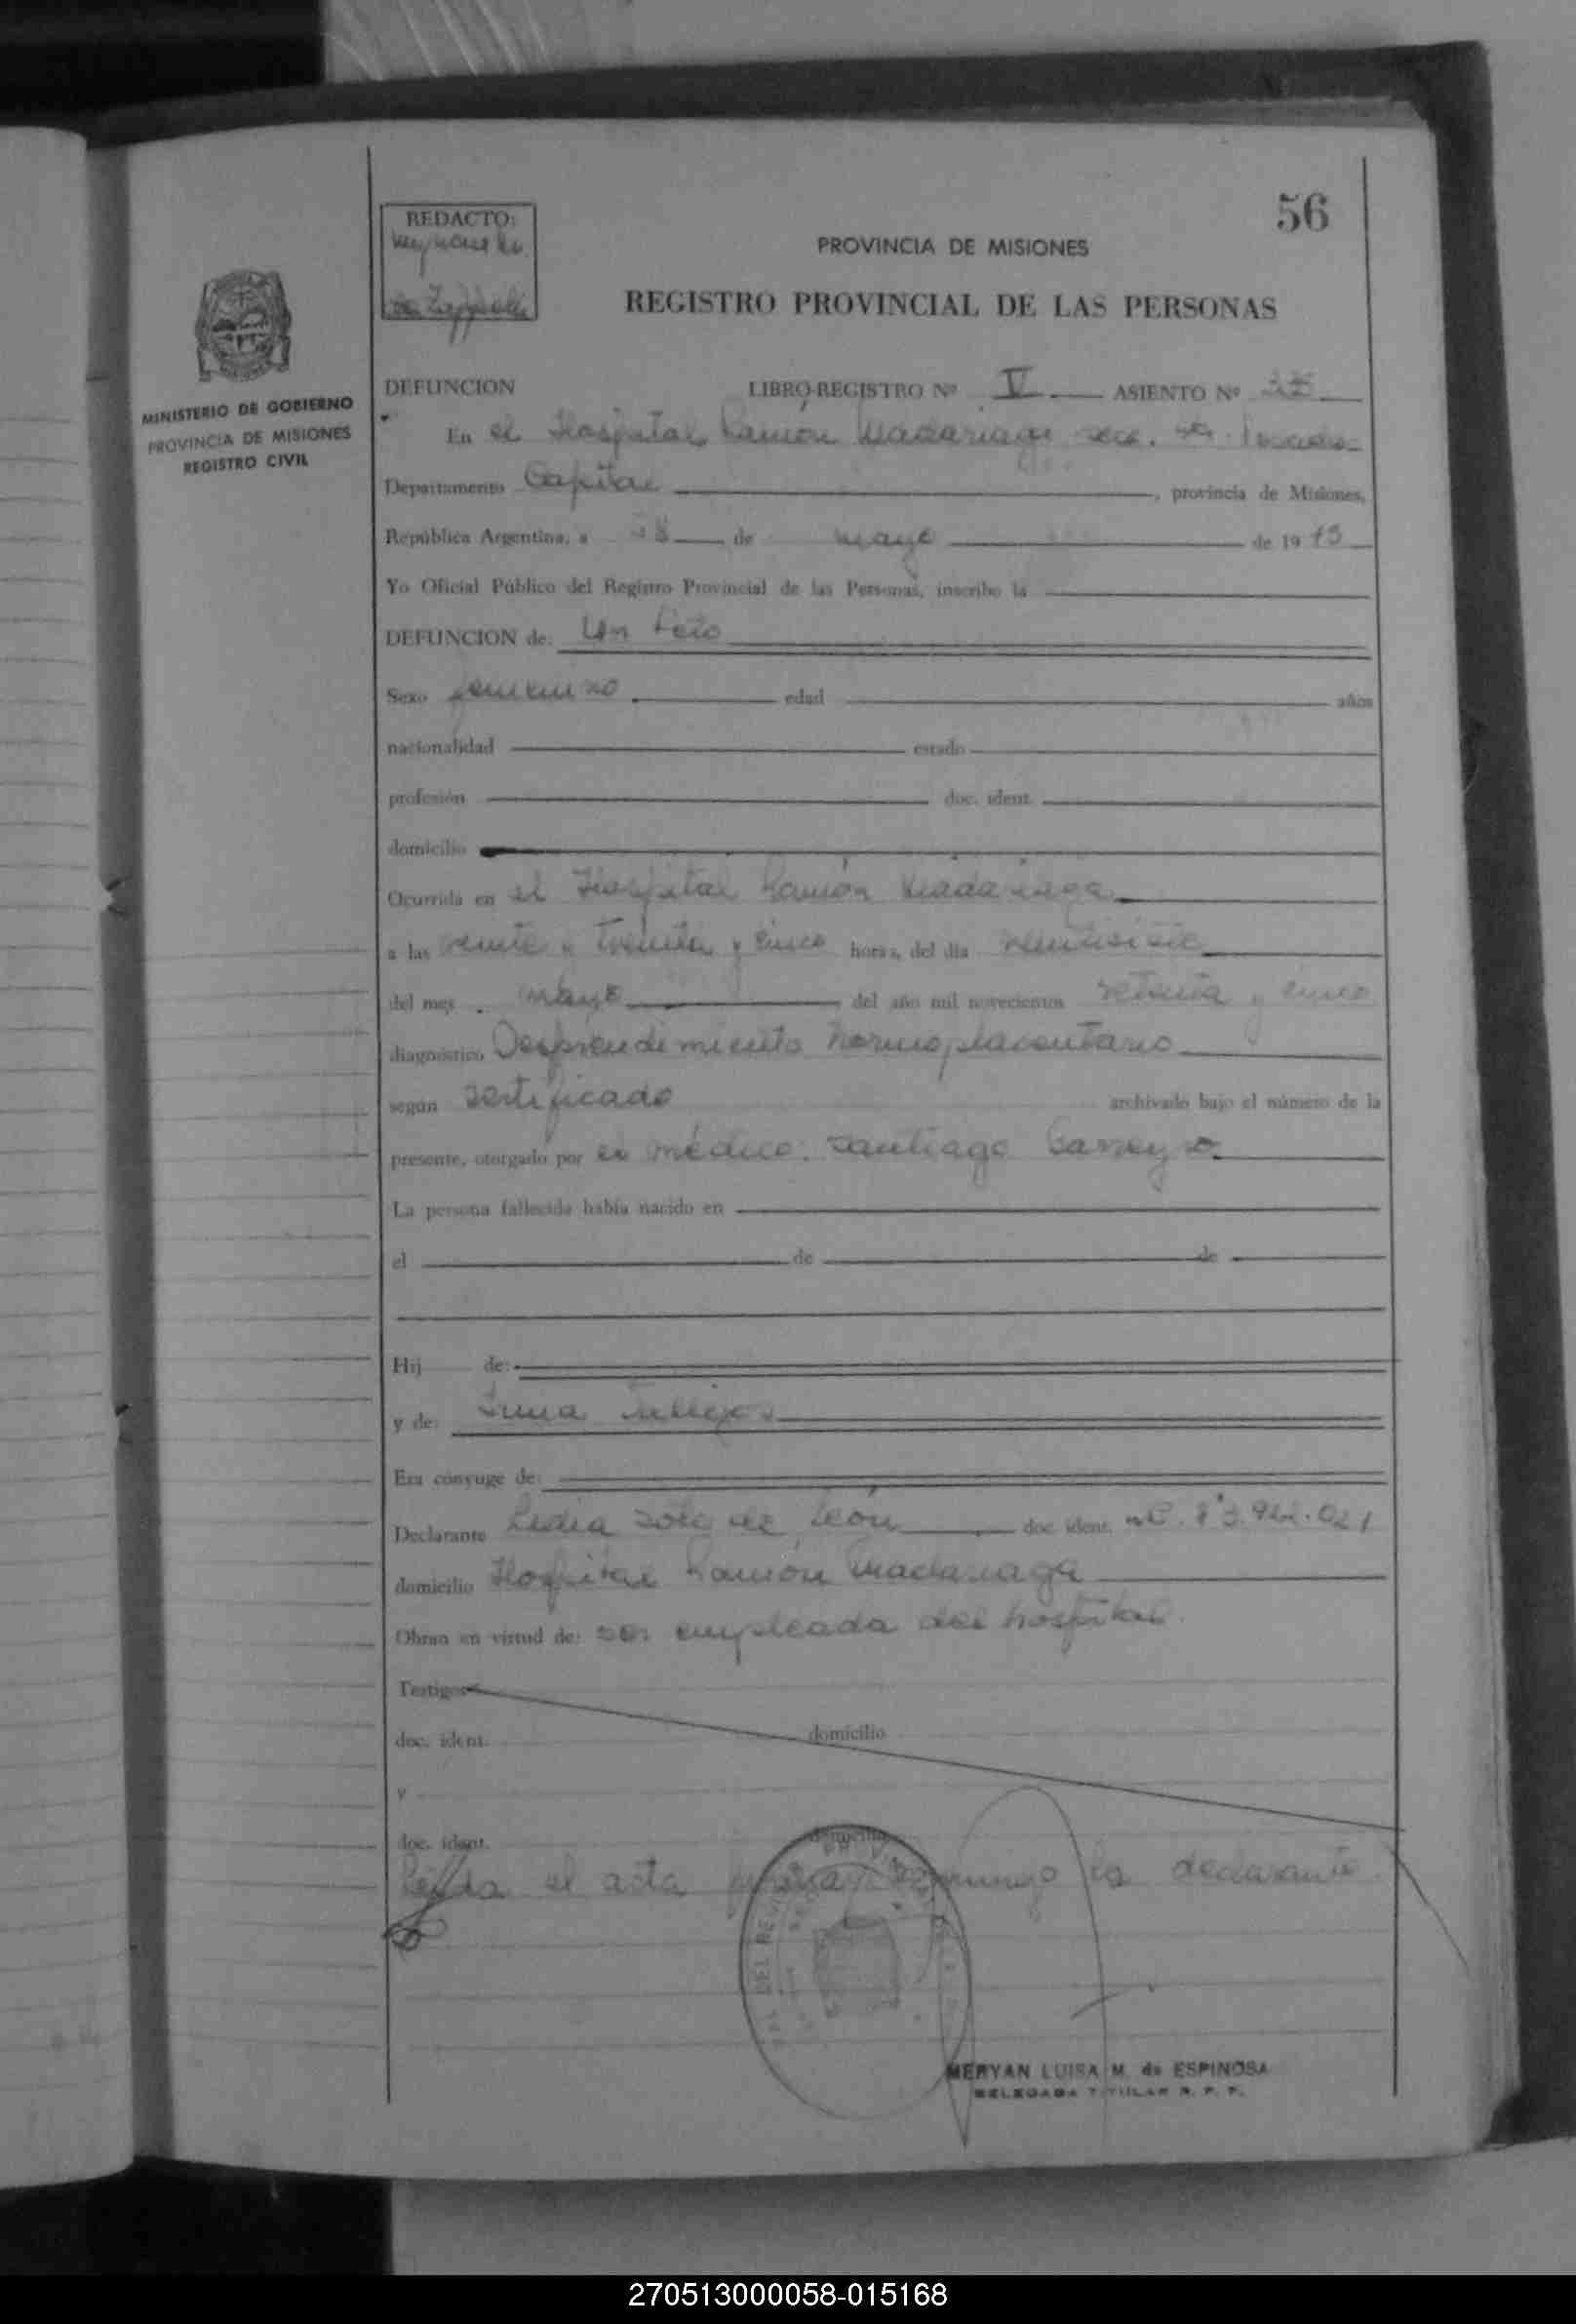 56
REDACTO:
PROVINCIA DE MISIONES
REGISTRO PROVINCIAL DE LAS PERSONAS
MINISTERIO DE GOBIERNO
PROVINCIA DE MISIONES
REGISTRO CIVIL
DEFUNCION LIBRO-REGISTRO Nº V ASIENTO Nº
En el Hospital Ramón Madariaga
Departamento Capital, provincia de Misiones,
República Argentina, a 28 de mayo de 19
Yo Oficial Público del Registro Provincial de las Personas, inscribo la
DEFUNCION de: Un Feto
Sexo femenino edad años
nacionalidad estado
profesión doc. ident.
domicilio
Ocurrida en el Hospital Ramón Madariaga
a las veinte y treinta y cinco horas, del día veintisiete
del mes mayo del año mil novecientos setenta y cinco
diagnóstico Desprendimiento normoplacentario
según sertificado archivado bajo el número de la
presente, otorgado por el médico: Santiago Barreyro
La persona fallecida había nacido en
el de de
Hij de:
y de:
Era cónyuge de:
Declarante Lidia Soto de León doc. ident.
domicilio Hospital Ramón Madariaga
Obran en virtud de: ser empleada del hospital.
Testigos
doc. ident. domicilio
y
doc. ident. domicilio
Leída el acta firma conmigo la declarante.
MERYAN LUISA M. de ESPINOSA
DELEGADA TITULAR R. P. P.
270513000058-015168